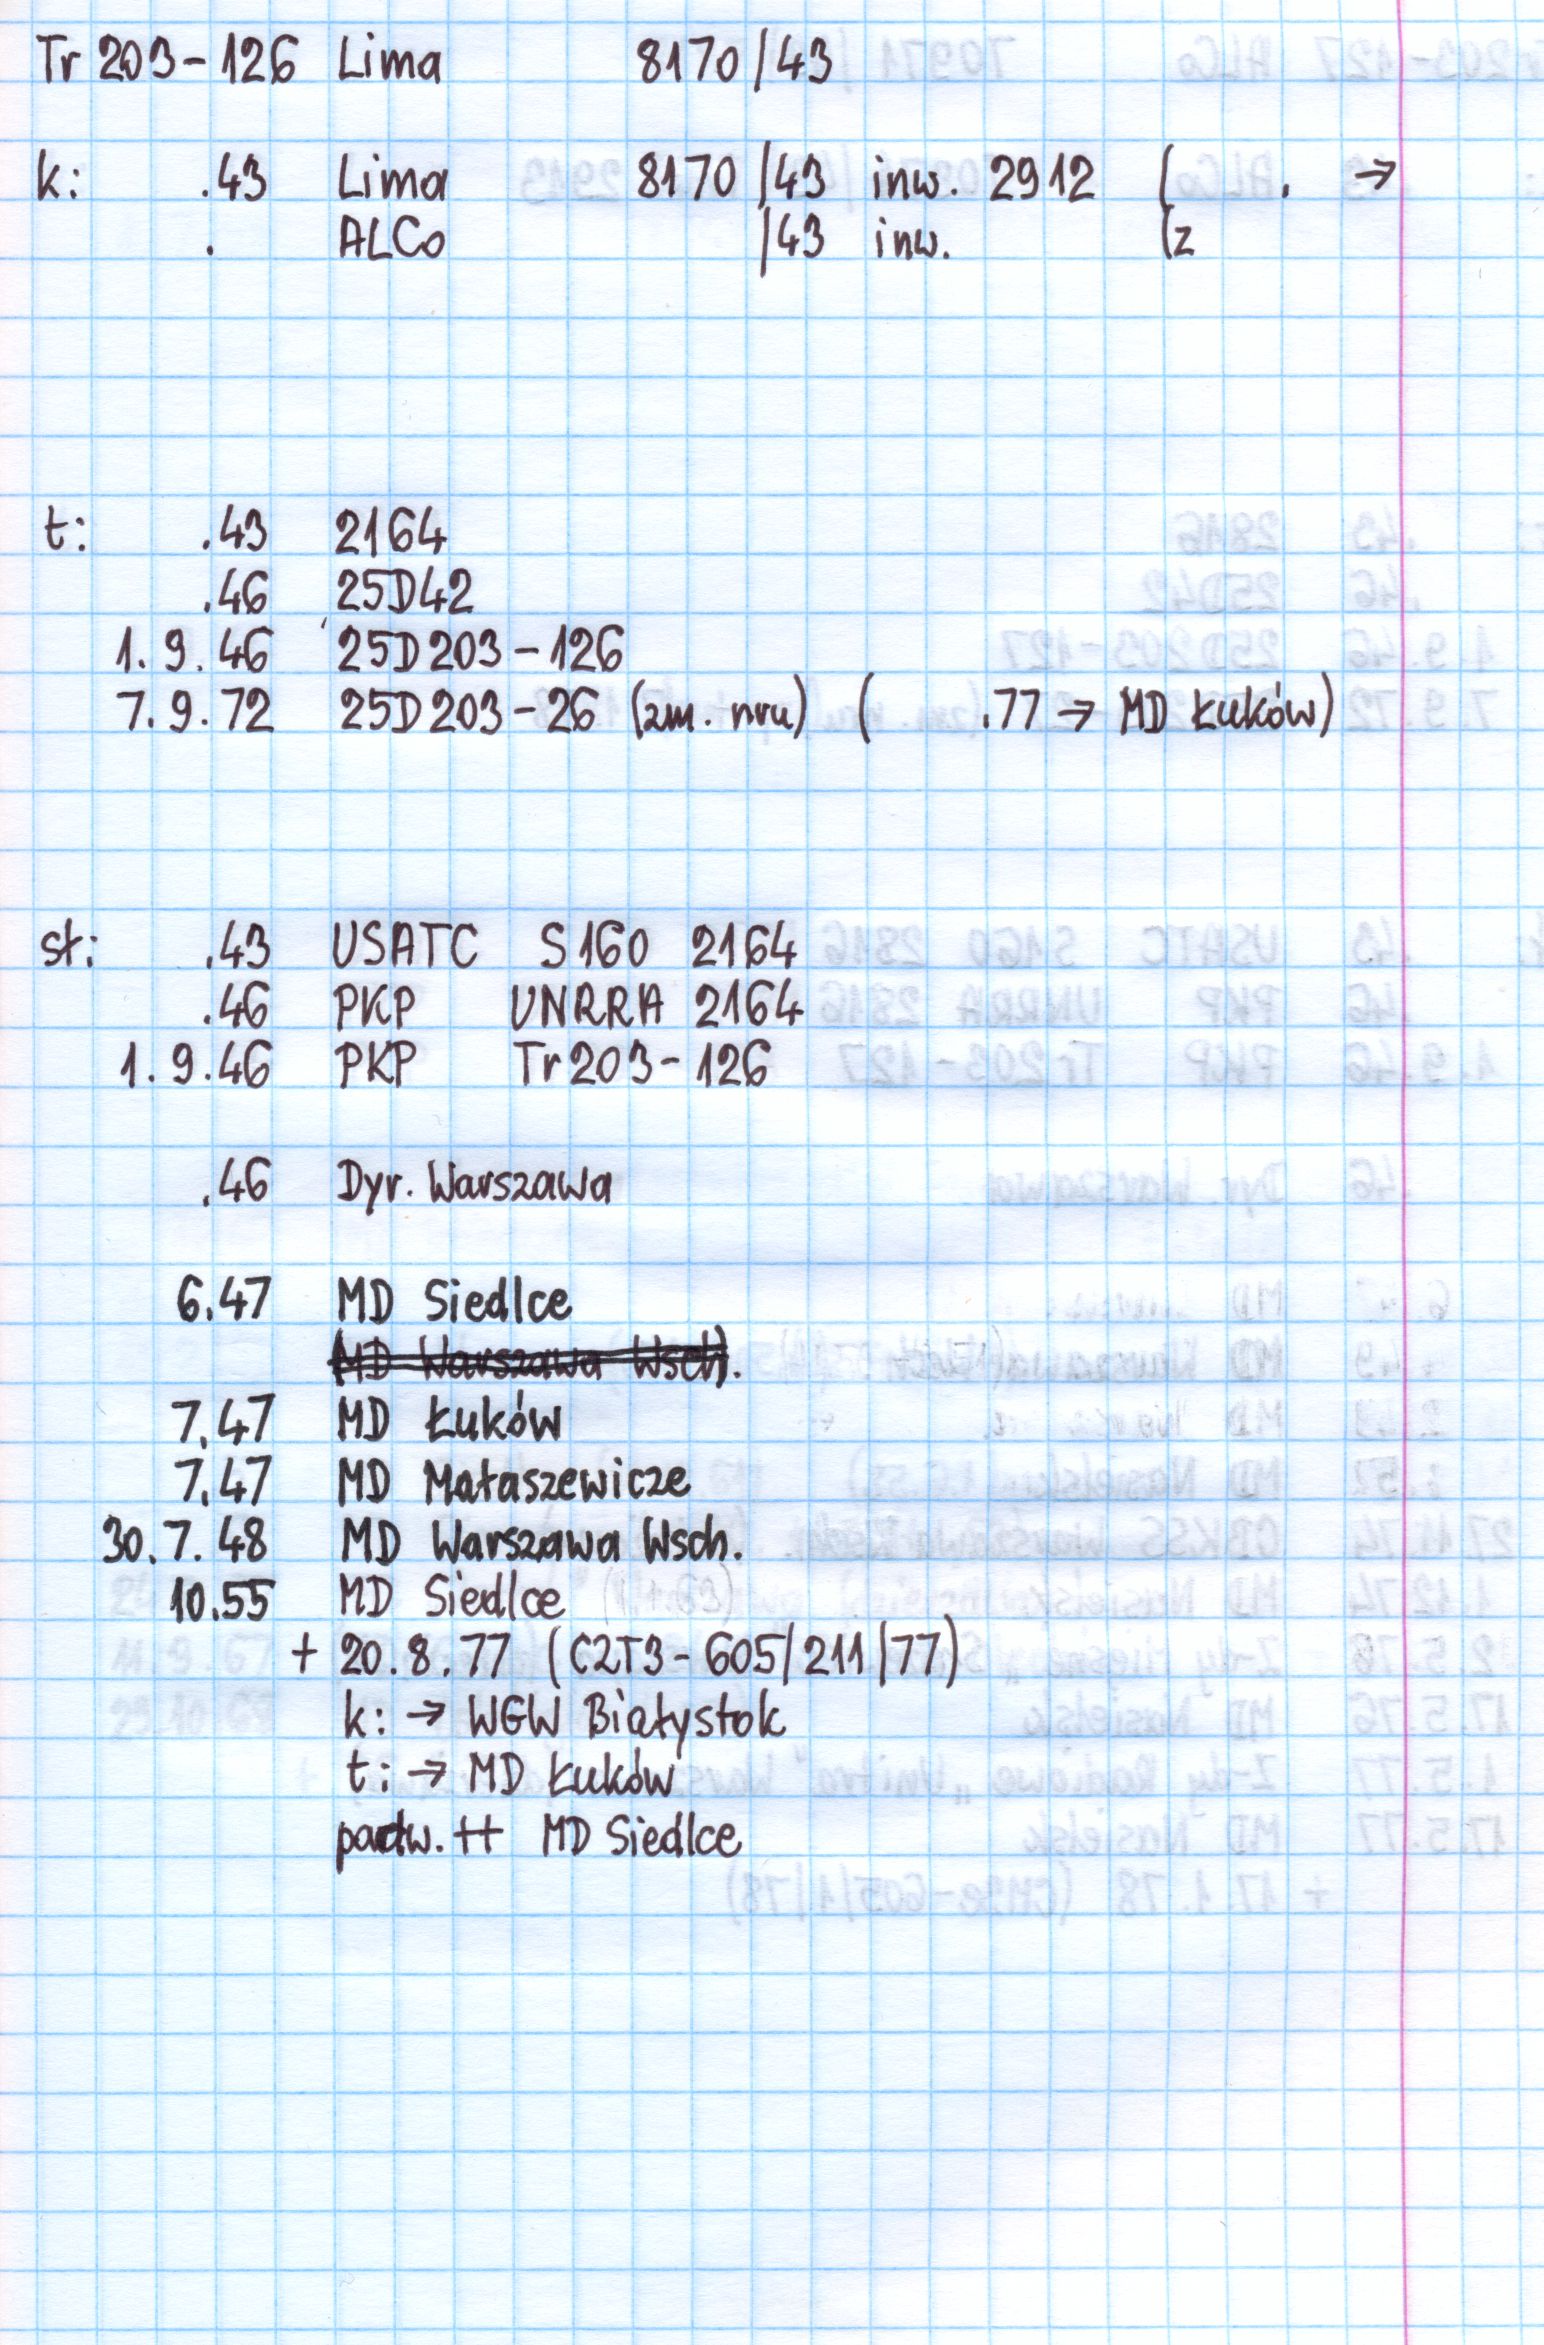 Tr 203-126 Lima 8170/43
k: .43 Lima 8170/43 inw. 2912 ( . →
. ALCo /43 inw. (z
t: .43 2164
.46 25D42
1.9.46 25D203-126
7.9.72 25D203-26 (zm. nru) ( .77 → MD Łuków)
st: .43 USATC S160 2164
.46 PKP UNRRA 2164
1.9.46 PKP Tr203-126
.46 Dyr. Warszawa
6.47 MD Siedlce
MD Warszawa Wsch.
7.47 MD Łuków
7.47 MD Małaszewicze
30.7.48 MD Warszawa Wsch.
10.55 MD Siedlce
+ 20.8.77 (C2T3-605/211/77)
k: → WGW Białystok
t: → MD Łuków
podw. ++ MD Siedlce